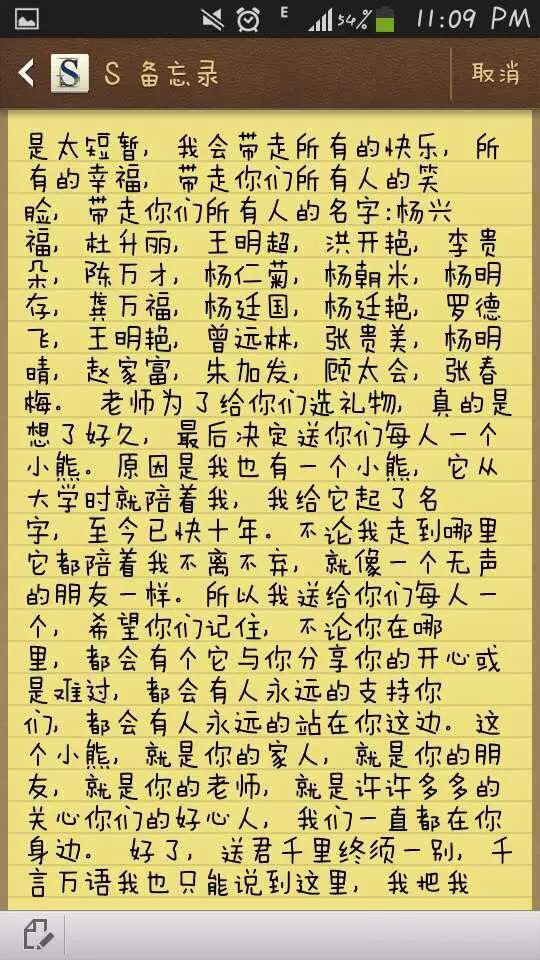 E 54% 11:09 PM
S S 备忘录 取消
是太短暂，我会带走所有的快乐，所
有的幸福，带走你们所有人的笑
脸，带走你们所有人的名字:杨兴
福，杜升丽，王明超，洪开艳，李贵
朵，陈万才，杨仁菊，杨朝米，杨明
存，龚万福，杨廷国，杨廷艳，罗德
飞，王明艳，曾远林，张贵美，杨明
晴，赵家富，朱加发，顾太会，张春
梅。 老师为了给你们选礼物，真的是
想了好久，最后决定送你们每人一个
小熊。原因是我也有一个小熊，它从
大学时就陪着我，我给它起了名
字，至今已快十年。不论我走到哪里
它都陪着我不离不弃，就像一个无声
的朋友一样。所以我送给你们每人一
个，希望你们记住，不论你在哪
里，都会有个它与你分享你的开心或
是难过，都会有人永远的支持你
们，都会有人永远的站在你这边。这
个小熊，就是你的家人，就是你的朋
友，就是你的老师，就是许许多多的
关心你们的好心人，我们一直都在你
身边。 好了，送君千里终须一别，千
言万语我也只能说到这里，我把我